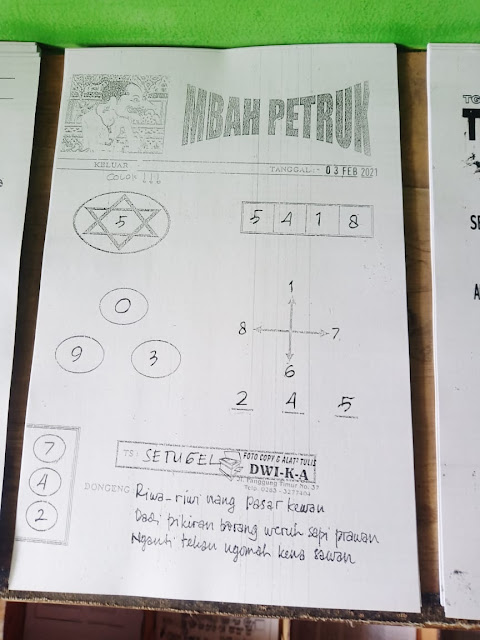 MBAH PETRUK
KELUAR
TANGGAL : 03 FEB 2021
COLOK !!!
5
5 4 1 8
0
9 3
1
8 7
6
2 4 5
7
4
2
TS : SETUGEL
FOTO COPY & ALAT TULIS
DWI-K-A
Jl. Panggung Timur No. 37
DONGENG
Riwa-riwi nang pasar kewan
Dadi pikiran bareng weruh sapi prawan
Nganti tekan ngomah kena sawan
TG
T
SE
A